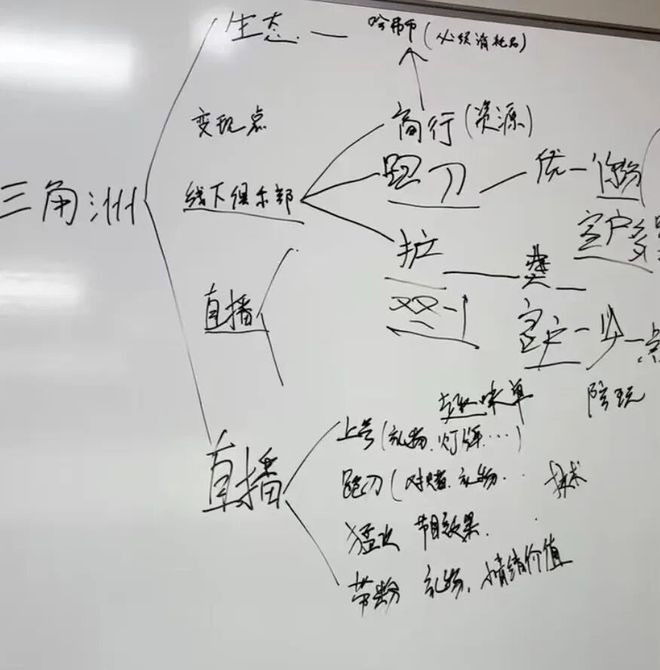 三角洲
生态 — 哈弗币 (必须消耗品)
变现点
商行 (资源)
线下俱乐部
跑刀 — 优一
客户多
护
直播
客户一少一点
趣味单
陪玩
直播
上号 (礼物、灯牌…)
跑刀 (对赌、礼物…
猛攻 节目效果.
带粉 礼物、情绪价值